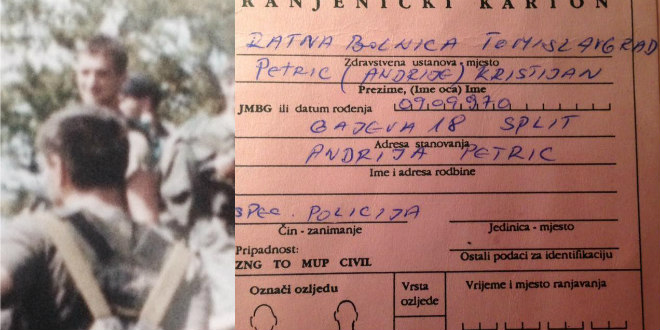 RANJENIČKI KARTON
RATNA BOLNICA TOMISLAVGRAD
Zdravstvena ustanova - mjesto
PETRIĆ (ANDRIJE) KRISTIJAN
Prezime, (Ime oca) Ime
JMBG ili datum rođenja 0909970
GAJEVA 18 SPLIT
Adresa stanovanja
ANDRIJA PETRIĆ
Ime i adresa rodbine
SPEC. POLICIJA
Čin - zanimanje
Jedinica - mjesto
Pripadnost:
Ostali podaci za identifikaciju
ZNG TO MUP CIVIL
Označi ozljedu
Vrsta ozljede
Vrijeme i mjesto ranjavanja